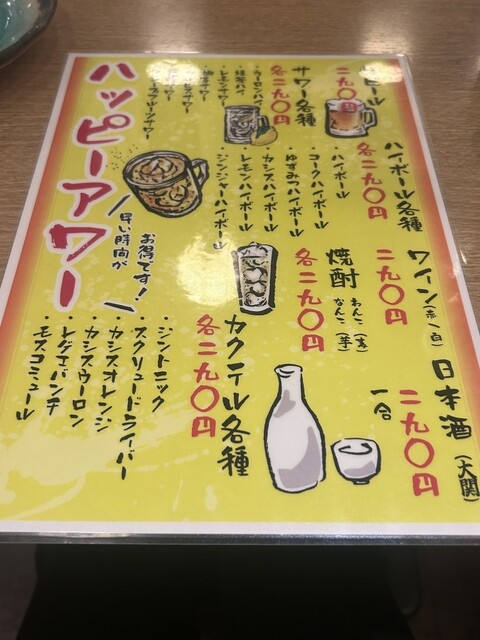 ハッピーアワー
早い時間が
お得です!
ビール
二九〇円
サワー各種
各二九〇円
・ウーロンハイ
・緑茶ハイ
・レモンサワー
サワー
サワー
フルーツサワー
ハイボール各種
各二九〇円
・ハイボール
・コークハイボール
・ゆずみつハイボール
・カシスハイボール
・レモンハイボール
・ジンジャーハイボール
ワイン(赤・白)
二九〇円
焼酎
わんこ(麦)
なんこ(芋)
各二九〇円
日本酒(大関)
二九〇円
一合
カクテル各種
各二九〇円
・ジントニック
・スクリュードライバー
・カシスオレンジ
・カシスウーロン
・レゲエパンチ
・モスコミュール